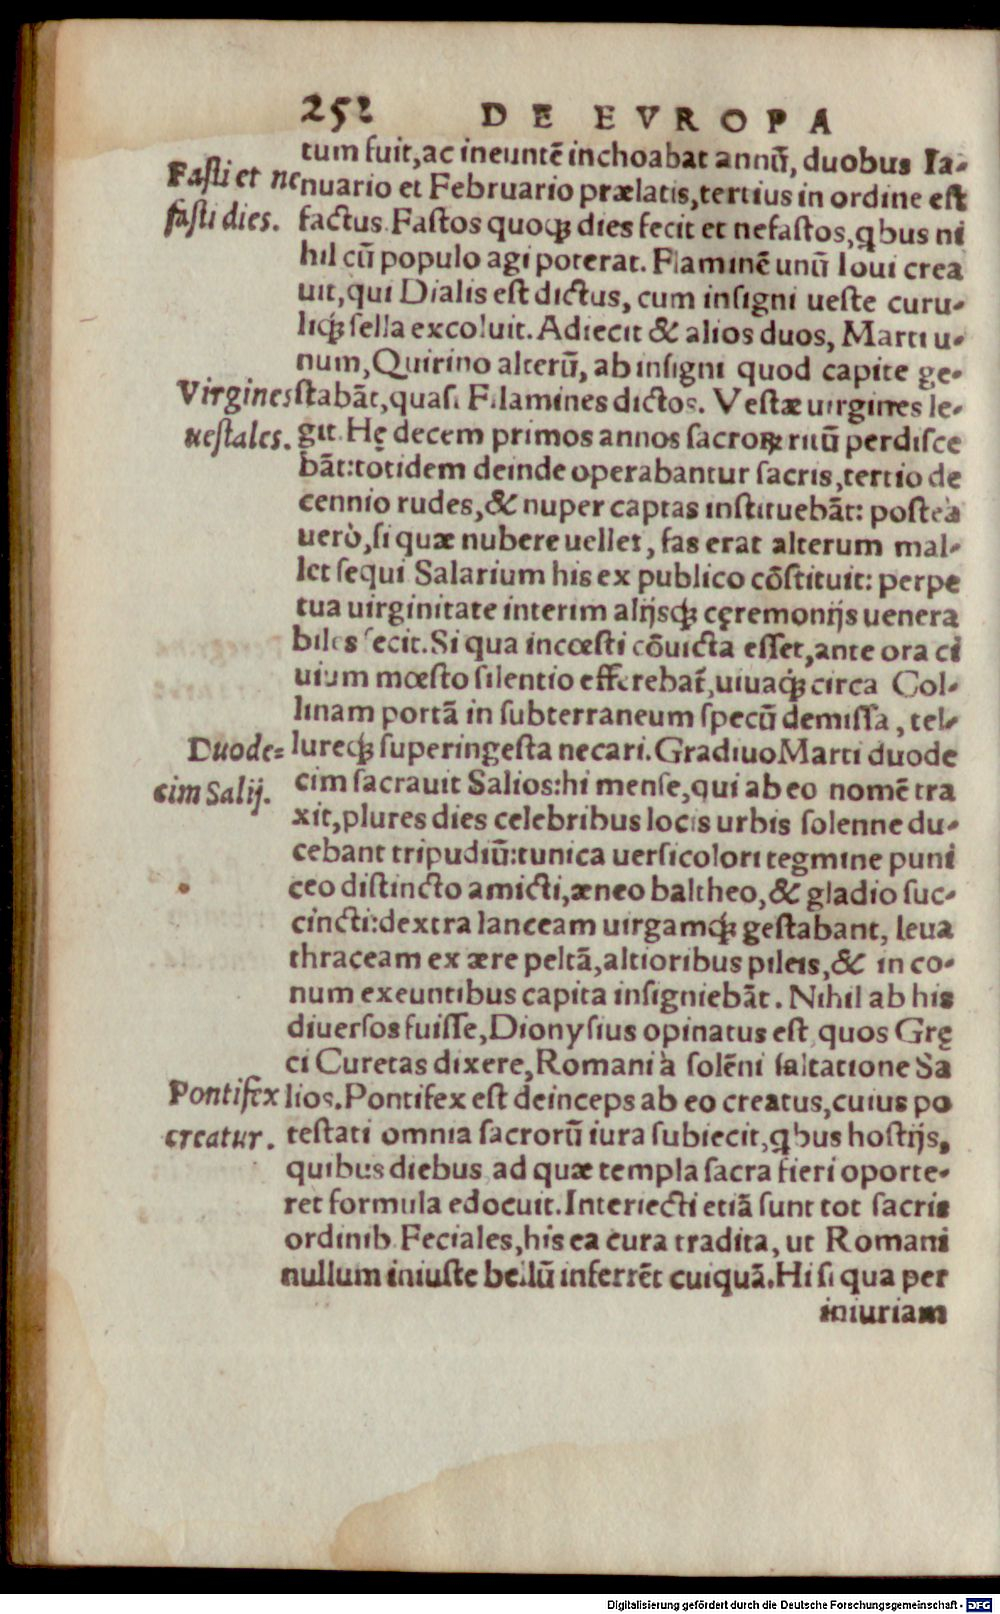 252 DE EVROPA
tum fuit, ac ineuntē inchoabat annū, duobus Ia-
Fasti et ne
nuario et Februario prælatis, tertius in ordine est
fasti dies.
factus. Fastos quoqȝ dies fecit et nefastos, qbus ni
hil cū populo agi poterat. Flaminē unū Ioui crea
uit, qui Dialis est dictus, cum insigni ueste curu-
liqȝ sella excoluit. Adiecit & alios duos, Marti u-
num, Quirino alterū, ab insigni quod capite ge-
Virgines
stabāt, quasi Filamines dictos. Vestæ uirgines le-
uestales.
git. Hę decem primos annos sacroꝝ ritū perdisce
bāt: totidem deinde operabantur sacris, tertio de
cennio rudes, & nuper captas instituebāt: posteà
uerò, si quæ nubere uellet, fas erat alterum mal-
let sequi Salarium his ex publico cōstituit: perpe
tua uirginitate interim alijsqȝ cęremonijs uenera
biles fecit. Si qua incœsti cōuicta esset, ante ora ci
uium mœsto silentio efferebat̄, uiuaqȝ circa Col-
linam portā in subterraneum specū demissa, tel-
Duode=
lureqȝ superingesta necari. Gradiuo Marti duode
cim Salij.
cim sacrauit Salios: hi mense, qui ab eo nomē tra
xit, plures dies celebribus locis urbis solenne du-
cebant tripudiū: tunica uersicolori tegmine puni
ceo distincto amicti, æneo baltheo, & gladio suc-
cincti: dextra lanceam uirgamqȝ gestabant, leua
thraceam ex ære peltā, altioribus pileis, & in co-
num exeuntibus capita insigniebāt. Nihil ab his
diuersos fuisse, Dionysius opinatus est, quos Grę
ci Curetas dixere, Romani à solēni saltatione Sa
Pontifex
lios. Pontifex est deinceps ab eo creatus, cuius po
creatur.
testati omnia sacrorū iura subiecit, qbus hostijs,
quibus diebus, ad quæ templa sacra fieri oporte-
ret formula edocuit. Interiecti etiā sunt tot sacris
ordinib. Feciales, his ea cura tradita, ut Romani
nullum iniuste bellū inferrēt cuiquā. Hi si qua per
iniuriam
Digitalisierung gefördert durch die Deutsche Forschungsgemeinschaft - DFG